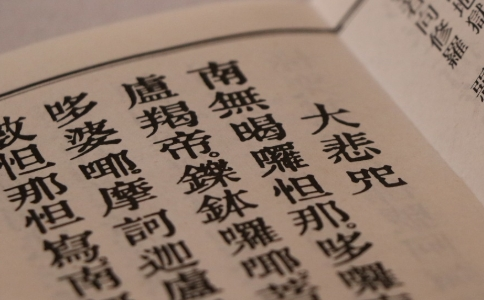 地獄
向修羅
大悲咒
南無喝囉怛那。哆囉
盧羯帝。鑠鉢囉㖿菩
哆婆㖿。摩訶迦盧
怛那怛寫。南